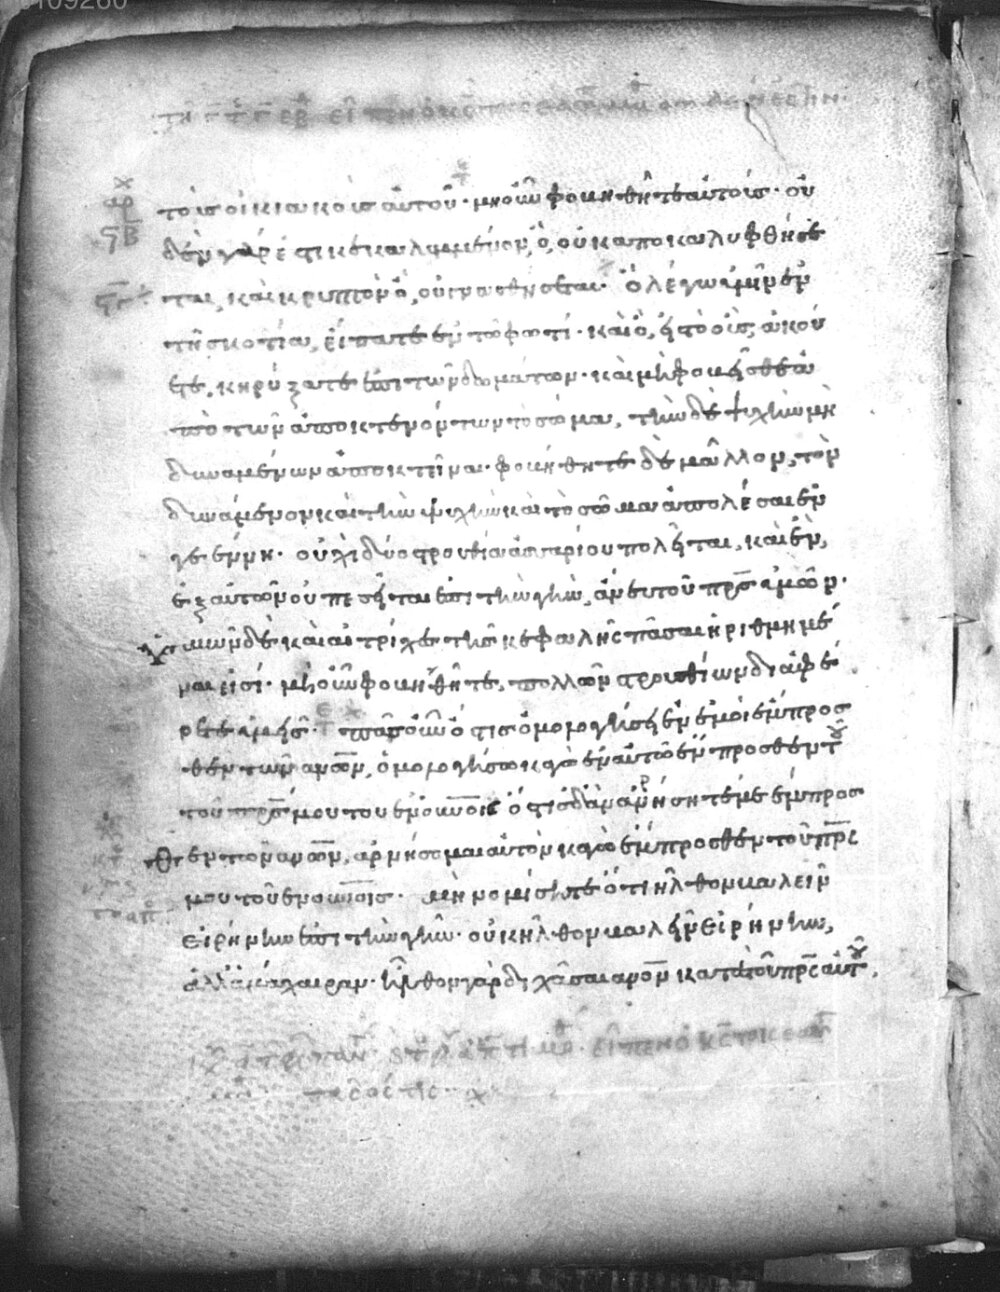 τοὺς οἰκιακοὺς αὐτοῦ· μὴ οὖν φοβηθῆτε αὐτούς· οὐ
δὲν γάρ ἐστι κεκαλυμμένον, ὃ, οὐκ ἀποκαλυφθήσε
ται, καὶ κρυπτὸν ὃ, οὐ γνωσθήσεται· ὃ λέγω ὑμῖν ἐν
τῇ σκοτίᾳ, εἴπατε ἐν τῷ φωτί· καὶ ὃ, εἰς τὸ οὖς ἀκού
ετε, κηρύξατε ἐπὶ τῶν δωμάτων· καὶ μὴ φοβεῖσθε ἀ
πὸ τῶν ἀποκτενόντων τὸ σῶμα, τὴν δὲ ψυχὴν μὴ
δυναμένων ἀποκτεῖναι· φοβήθητε δὲ μᾶλλον, τὸν
δυνάμενον καὶ τὴν ψυχὴν καὶ τὸ σῶμα ἀπολέσαι ἐν
γεέννῃ· οὐχὶ δύο στρουθία ἀσσαρίου πολεῖται, καὶ ἓν,
ἐξ αὐτῶν οὐ πεσεῖται ἐπὶ τὴν γῆν, ἄνευ τοῦ πρς ὑμῶν·
ὑμῶν δὲ καὶ αἱ τρίχες τῆς κεφαλῆς πᾶσαι ἠριθμημέ
ναι εἰσί· μὴ οὖν φοβηθῆτε, πολλῶν στρουθίων διαφέ
ρετε ὑμεῖς· πᾶς οὖν ὅστις ὁμολογήσει ἐν ἐμοὶ ἔμπροσ
θεν τῶν ανων, ὁμολογήσω κἀγὼ ἐν αὐτῷ ἔμπροσθεν
τοῦ πρς μου τοῦ ἐν οὐνοις ὅστις δ' ἂν ἀρνήσηταί με ἔμπροσ
θεν τῶν ανων, ἀρνήσομαι αὐτὸν κἀγὼ ἔμπροσθεν τοῦ πρς
μου τοῦ ἐν οὐνοις· μὴ νομίσητε ὅτι ἦλθον βαλεῖν
εἰρήνην ἐπὶ τὴν γῆν· οὐκ ἦλθον βαλεῖν εἰρήνην,
ἀλλὰ μάχαιραν· ἦλθον γὰρ διχάσαι ανον κατὰ τοῦ πρς αὐτοῦ,